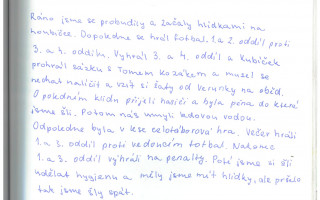 Ráno jsme se probudily a začaly hlídkami na
houbičce. Dopoledne se hrál fotbal. 1. a 2. oddíl proti
3. a 4. oddílu. Vyhrál 3. a 4. oddíl a Kubíček
prohrál sázku s Tomem Kozákem a musel se
nechat nalíčit a vzít si šaty od Verunky na oběd.
O poledním klidu přijeli hasiči a byla pěna do které
jsme šli. Potom nás umyli ledovou vodou.
Odpoledne byla v lese celotáborová hra. Večer hráli
1. a 3. oddíl proti vedoucím fotbal. Nakonec
1. a 3. oddíl vyhráli na penalty. Poté jsme si šli
udělat hygienu a měly jsme mít hlídky, ale pršelo
tak jsme šly spát.